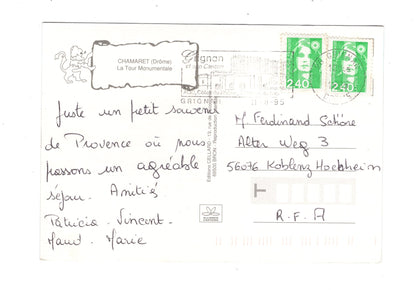 CHAMARET (Drôme)
La Tour Monumentale
Grignan
GRIGNAN
2,40
2,40
Juste un petit souvenir
de Provence où nous
passons un agréable
séjour. Amitiés
Patricia. Vincent.
Maud. Marie
M Ferdinand Schöne
Alter Weg 3
56076 Koblenz Horchheim
R.F.A